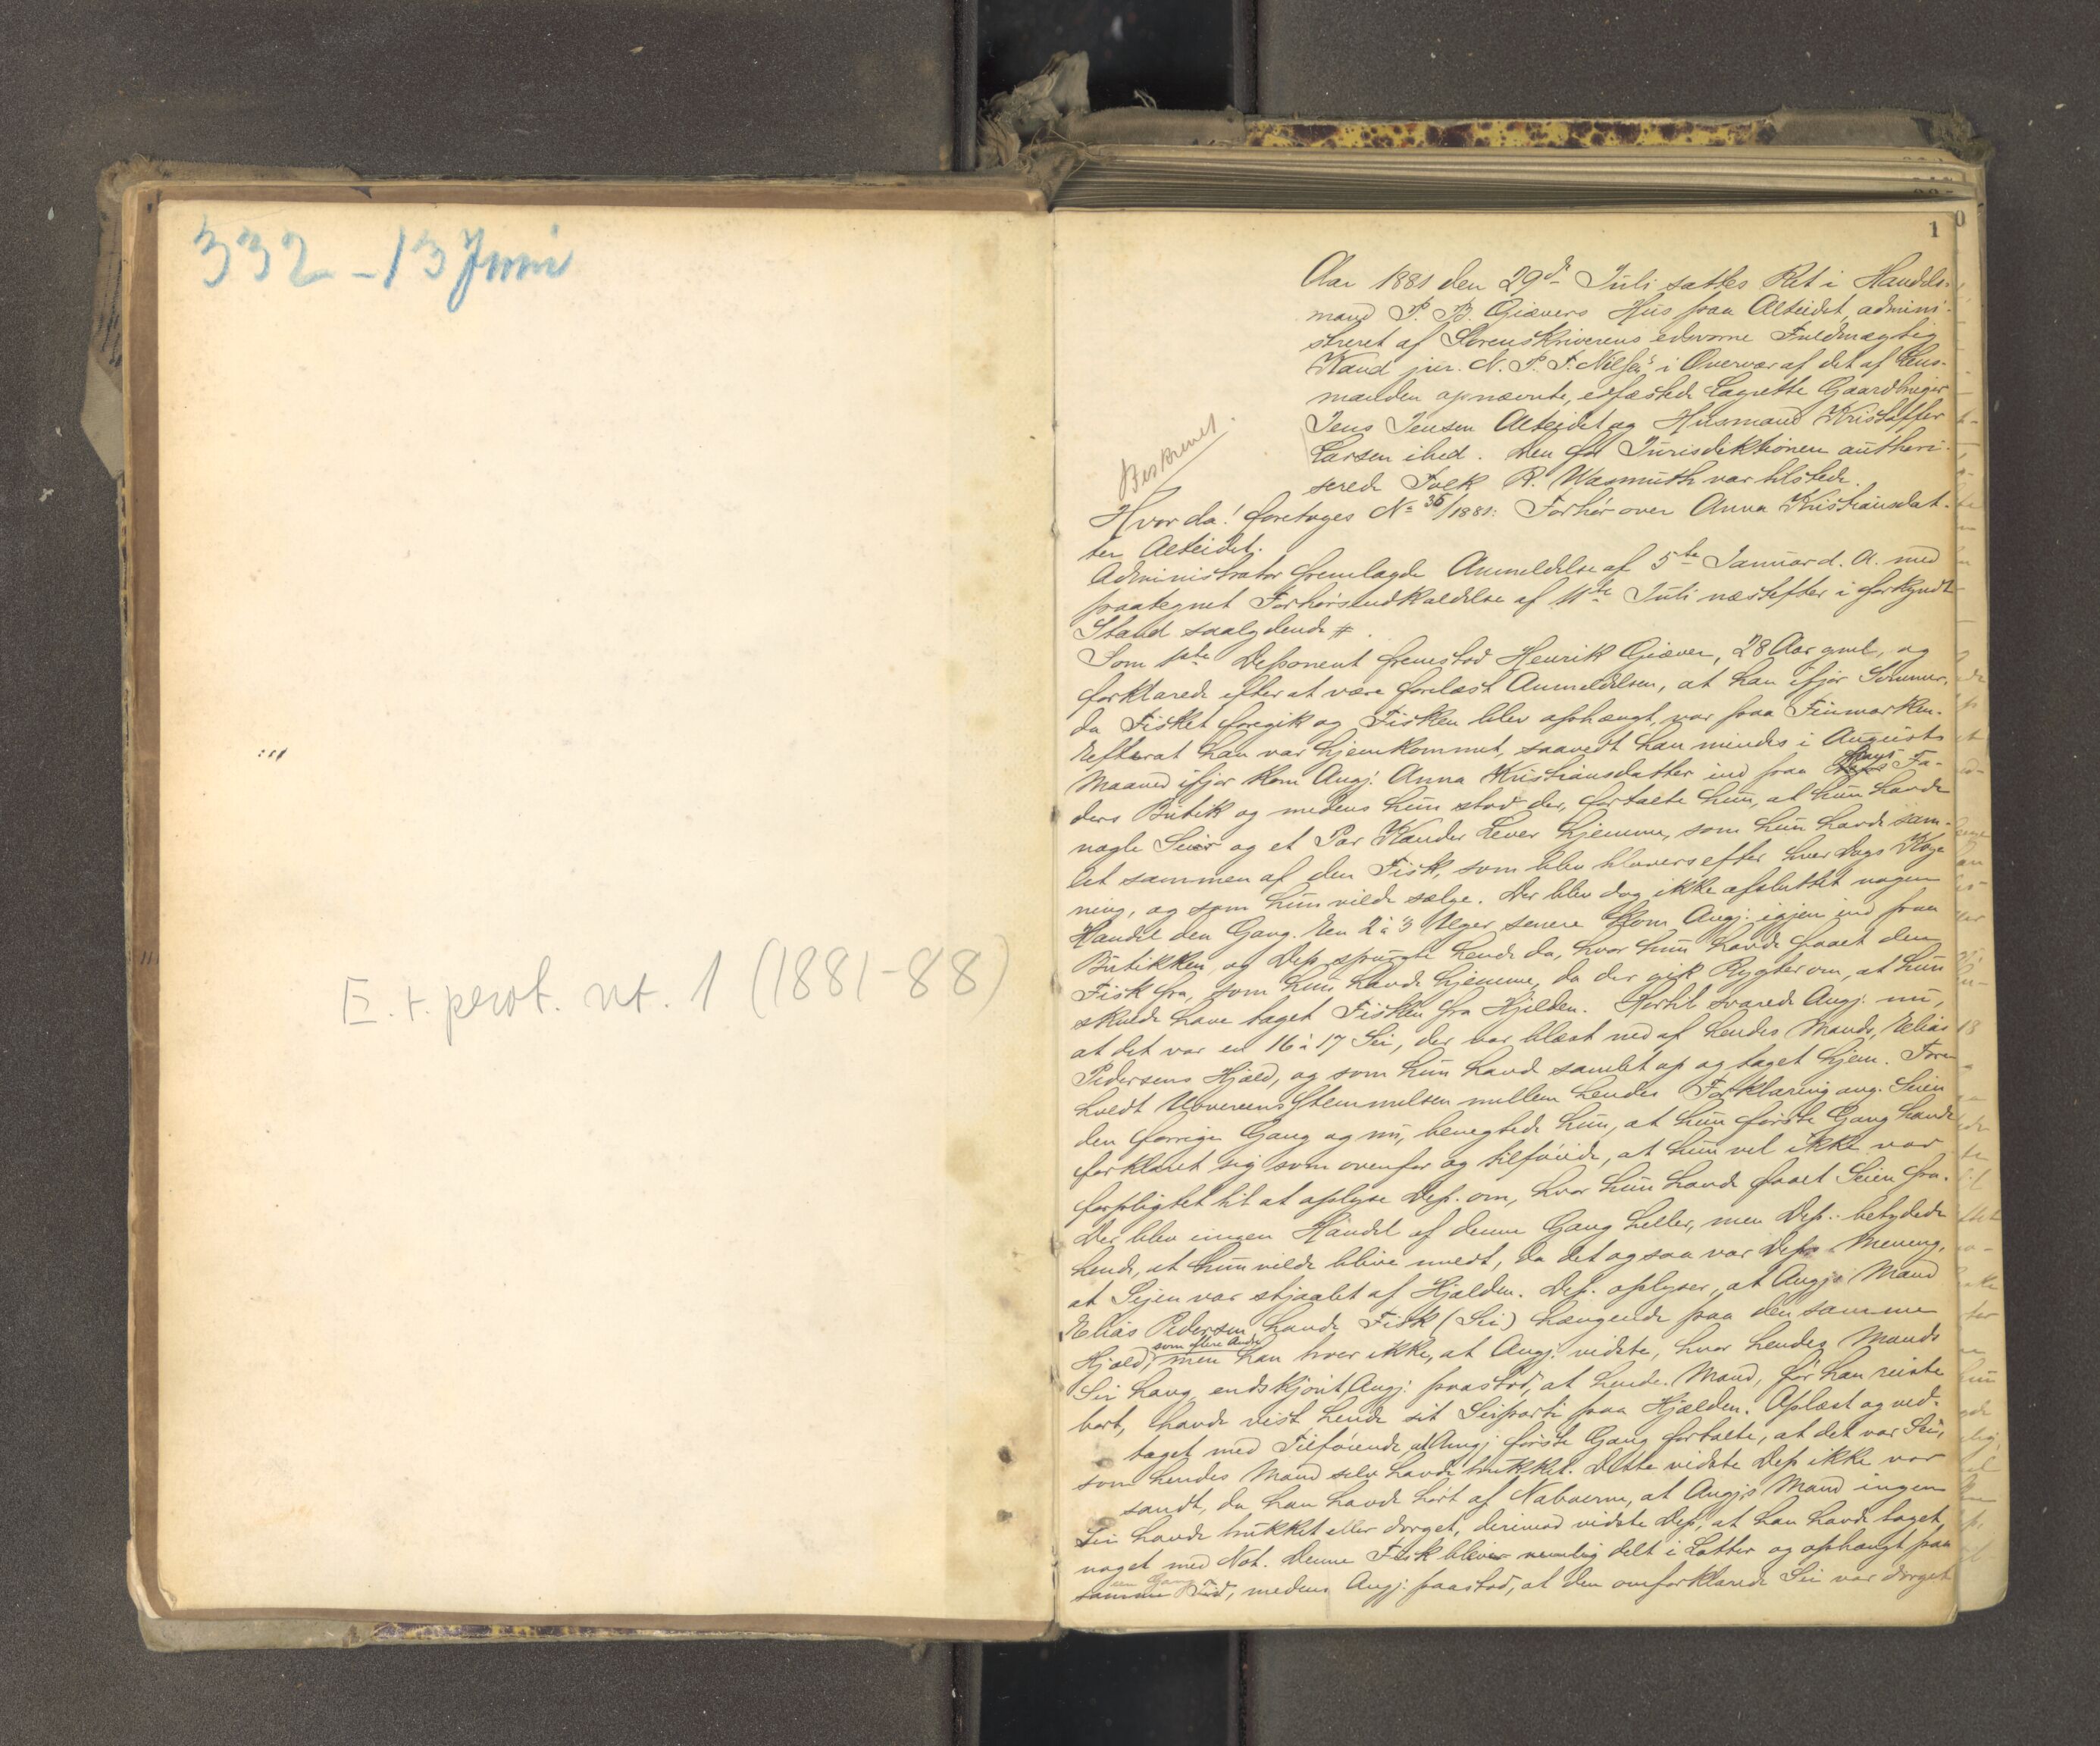 332 - 13 Juni
E. r. prot. nr. 1 (1881-88)
1
Aar 1881 den 29de Juli sattes Ret i Handels-
mand P. B. Giævers Hus paa Alteidet, admini-
streret af Sorenskriverens edsvorne Fuldmægtig
Kand jur. N. P. F. Nilsen i Overvær af det af Lens-
manden opnævnte, edfæstede Lagrette Gaardbruger
Jens Jensen Alteidet og Husmand Kristoffer
Larsen ibid. Den for Jurisdiktionen authori-
serede Tolk R. Wasmuth var tilstede.
Beskrevet.
Hvor da! foretoges No 35/1881: Forhør over Anna Kristiansdat-
ter Alteidet.
Administrator fremlagde Anmeldelse af 5te Januar d. A. med
paategnet Forhørsindkaldelse af 11te Juli næstefter i forkyndt
Stand saalydende #.
Som 1ste Deponent fremstod Henrik Giæver, 28 Aar gml., og
forklarede efter at være forelæst Anmeldelsen, at han ifjor Sommer,
da Fisket foregik og Fisken blev ophængt, var paa Finmarken.
Efterat han var hjemkommet, saavidt han mindes i Augusts
Maaned ifjor kom Angj. Anna Kristiansdatter ind paa Deps Fa-
ders Butik og medens hun stod der, fortalte hun, at hun havde
nogle Seier og et Par Kander Lever hjemme, som hun havde sam-
let sammen af den Fisk, som blev tilovers efter hver Dags Kog-
ning, og som hun vilde sælge. Der blev dog ikke afsluttet nogen
Handel den Gang. En 2 à 3 Uger senere kom Angj. igjen ind paa
Butikken, og Dep. spurgte hende da, hvor hun havde faaet den
Fisk fra, som hun havde hjemme, da der gik Rygter om, at hun
skulde have taget Fisken fra Hjelden. Hertil svarede Angj. nu,
at det var en 16 à 17 Sei, der var blæst ned af hendes Mands, Elias
Pedersens Hjeld, og som hun havde samlet op og taget hjem. Fore-
holdt Uoverensstemmelsen mellem hendes Forklaring ang. Seien
den forrige Gang og nu, benegtede hun, at hun første Gang havde
forklaret sig som ovenfor og tilføiede, at hun vel ikke var
forpligtet til at oplyse Dep. om, hvor hun havde faaet Seien fra.
Der blev ingen Handel af denne Gang heller, men Dep. betydede
hende, at hun vilde blive meldt, da det ogsaa var Deps Mening,
at Sejen var stjaalet af Hjælden. Dep. oplyser, at Angjs Mand
Elias Pedersen havde Fisk (Sei) hængende paa den samme
Hjæld, som flere Andre men han tror ikke, at Angj. vidste, hvor hendes Mands
Sei hang, endskjønt Angj. paastod, at hendes Mand, før han reiste
bort, havde vist hende sit Seiparti paa Hjælden. Oplæst og ved-
taget med Tilføiende, at Angj første Gang fortalte, at det var Sei,
som hendes Mand selv havde trukket. Dette vidste Dep ikke var
sandt, da han havde hørt af Naboerne, at Angjs Mand ingen
Sei havde trukket eller dorget, derimod vidste Dep, at han havde taget
noget med Not. Denne Fisk bliver nemlig delt i Lotter og ophængt paa
een Gang
samme Tid, medens Angj. paastod, at den omforklarede Sei var dorget